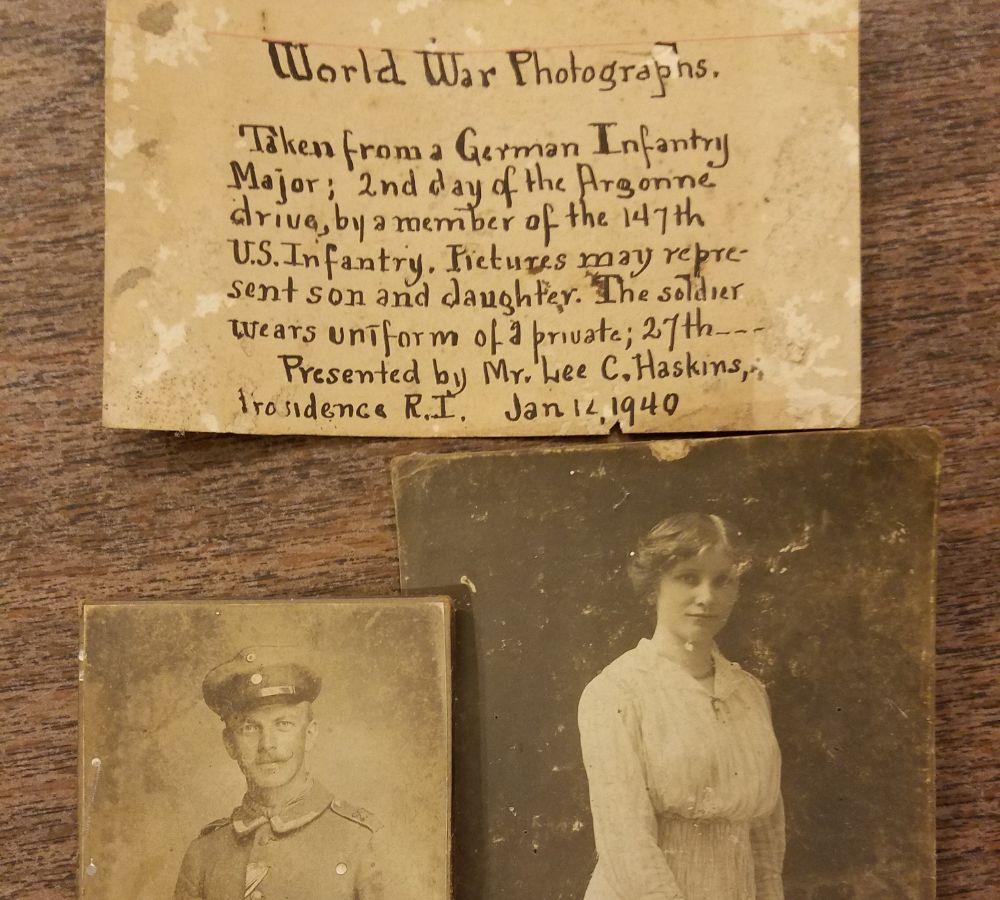 World War Photographs.
Taken from a German Infantry
Major; 2nd day of the Argonne
drive, by a member of the 147th
U.S. Infantry. Pictures may repre-
sent son and daughter. The soldier
wears uniform of a private; 27th---
Presented by Mr. Lee C. Haskins,
Providence R.I. Jan 12, 1940